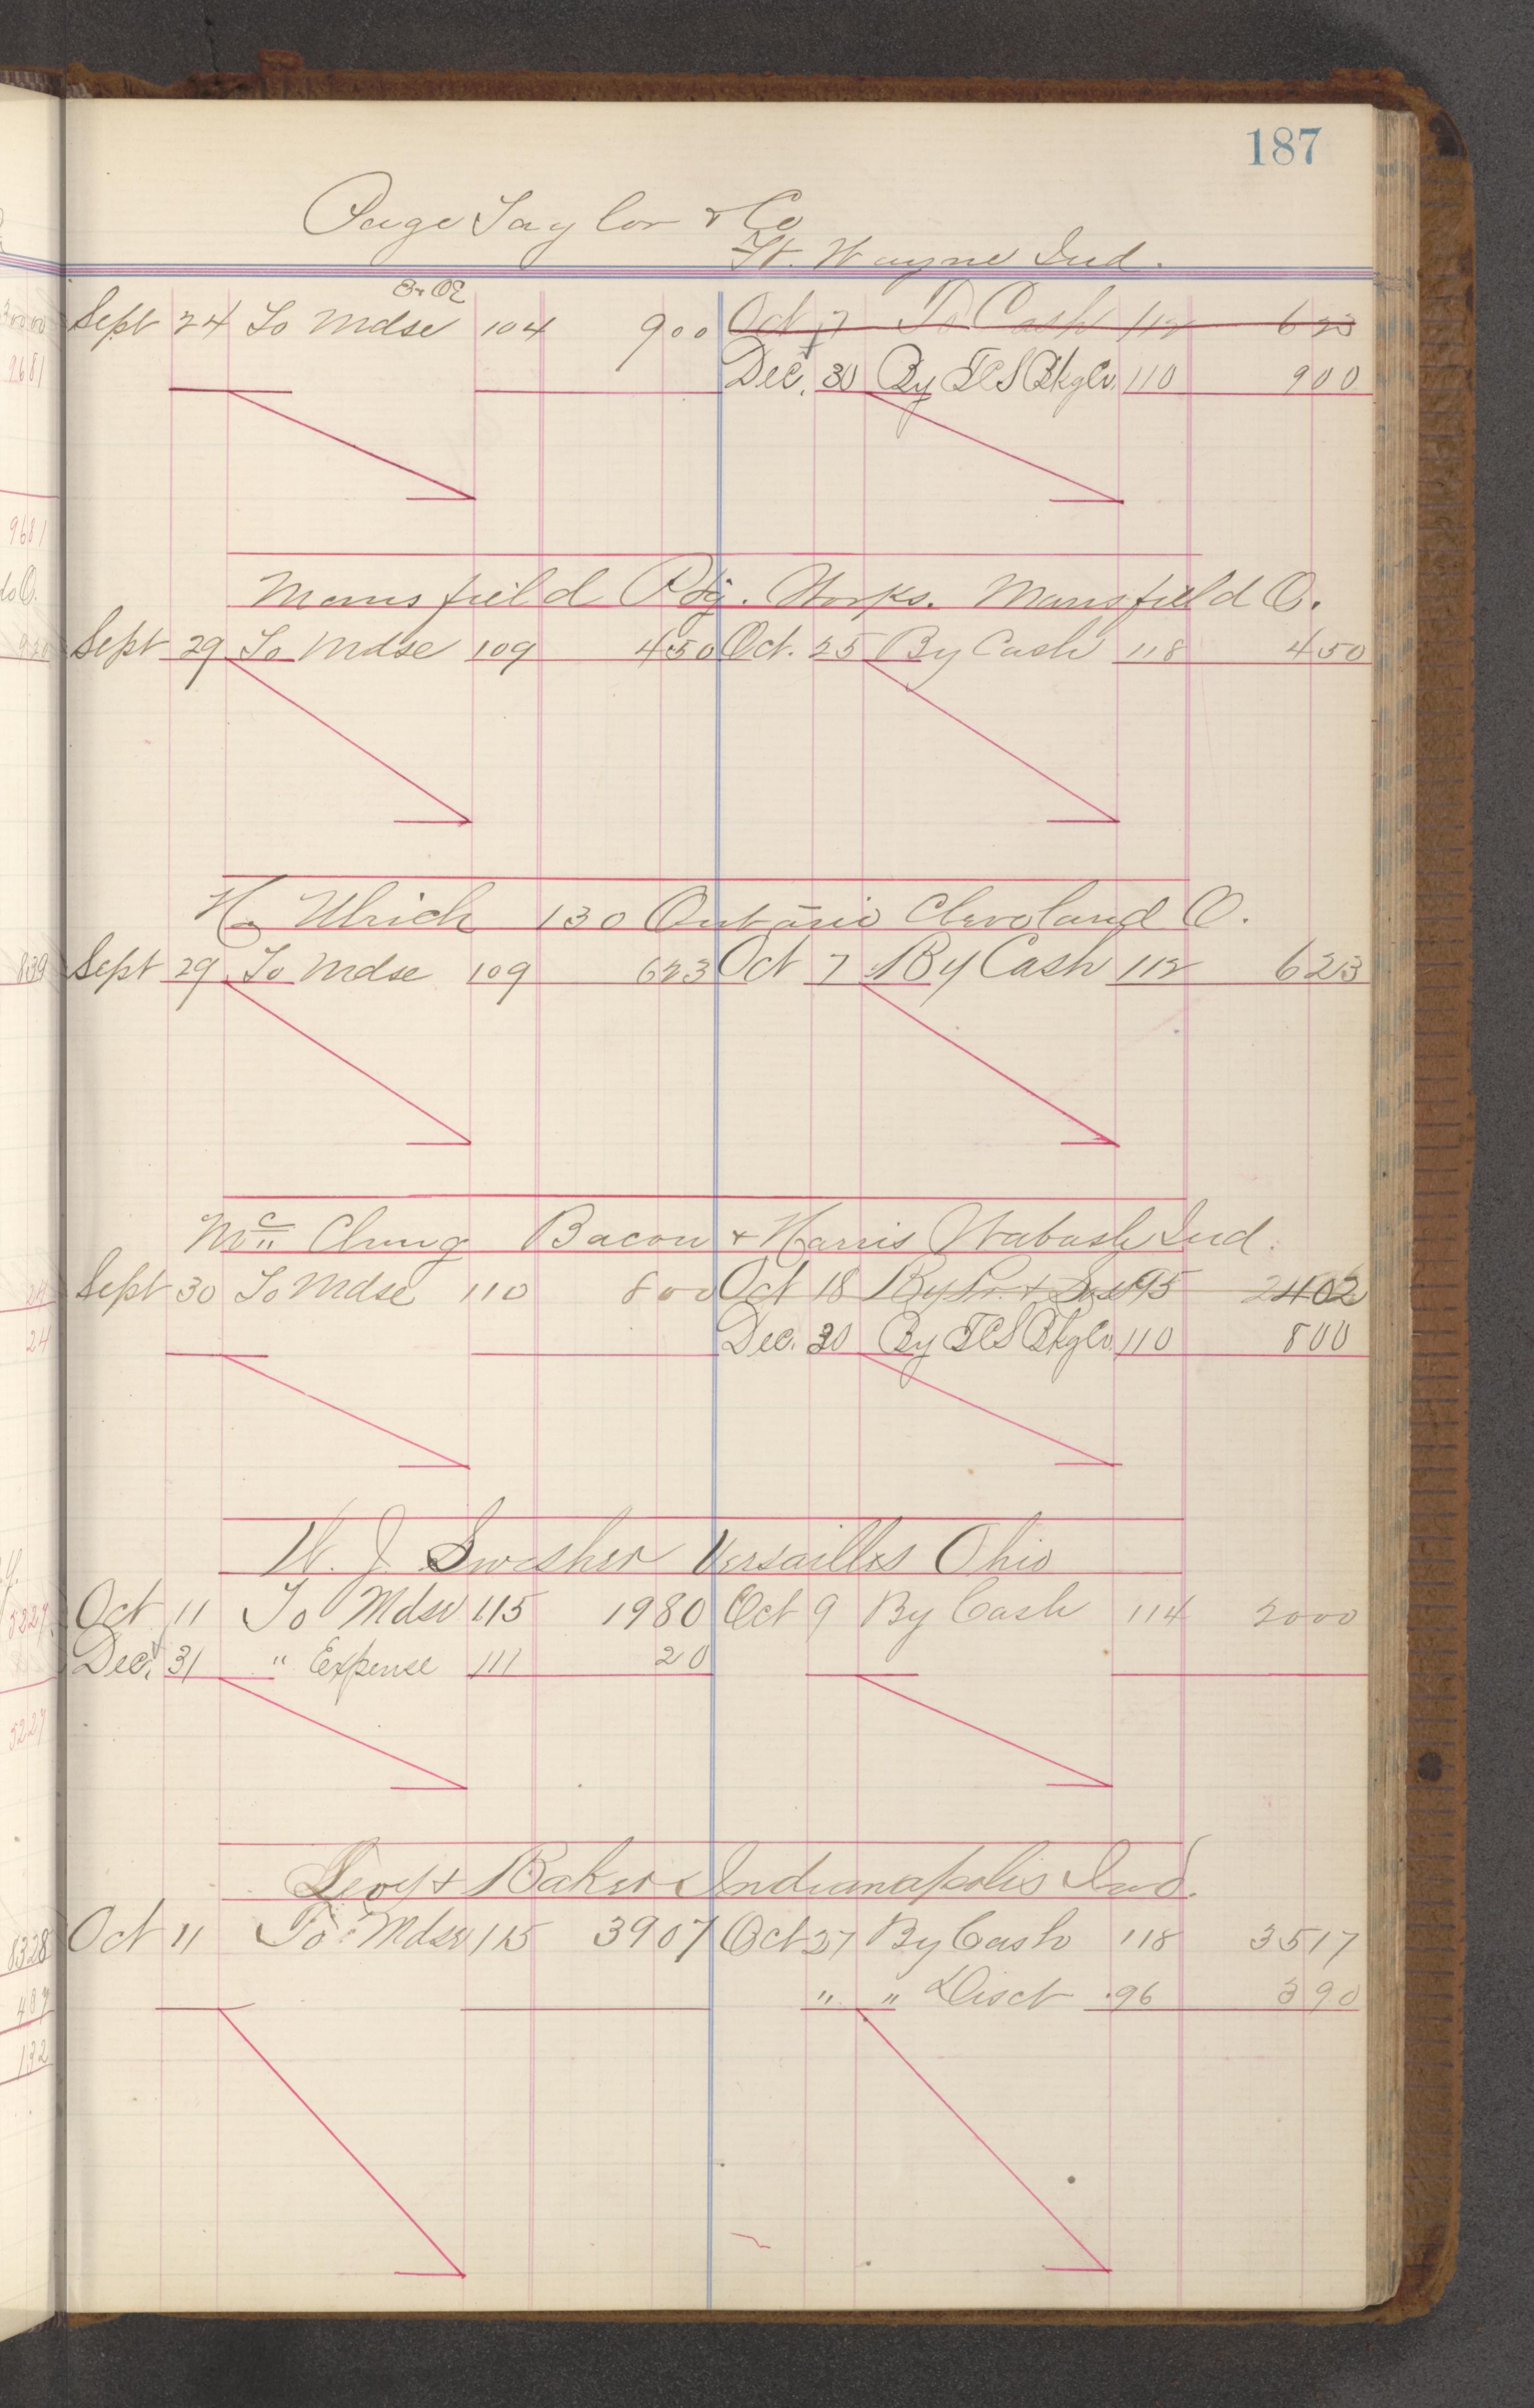 187
Page Taylor & Co
Ft. Wayne Ind.
Sept 24 To Mdse 104 900 Oct 7 To Cash 112 623
Dec. 30 By TCS Bkg Co. 110 900
Mansfield Works. Mansfield O.
Sept 29 To Mdse 109 450 Oct. 25 By Cash 118 450
H. Ulrich 130 Ontario Cleveland O.
Sept 29 To Mdse 109 623 Oct 7 By Cash 112 623
Mc Clung Bacon & Harris Wabash Ind.
Sept 30 To Mdse 110 800 Oct 18 By 95 2402
Dec. 30 By TCS Bkg Co. 110 800
W. J. Swisher Versailles Ohio
Oct 11 To Mdse 115 1980 Oct 9 By Cash 114 2000
Dec. 31 " Expense 111 20
Levy & Baker Indianapolis Ind.
Oct 11 To Mdse 115 3907 Oct 27 By Cash 118 3517
" " Disct 96 390